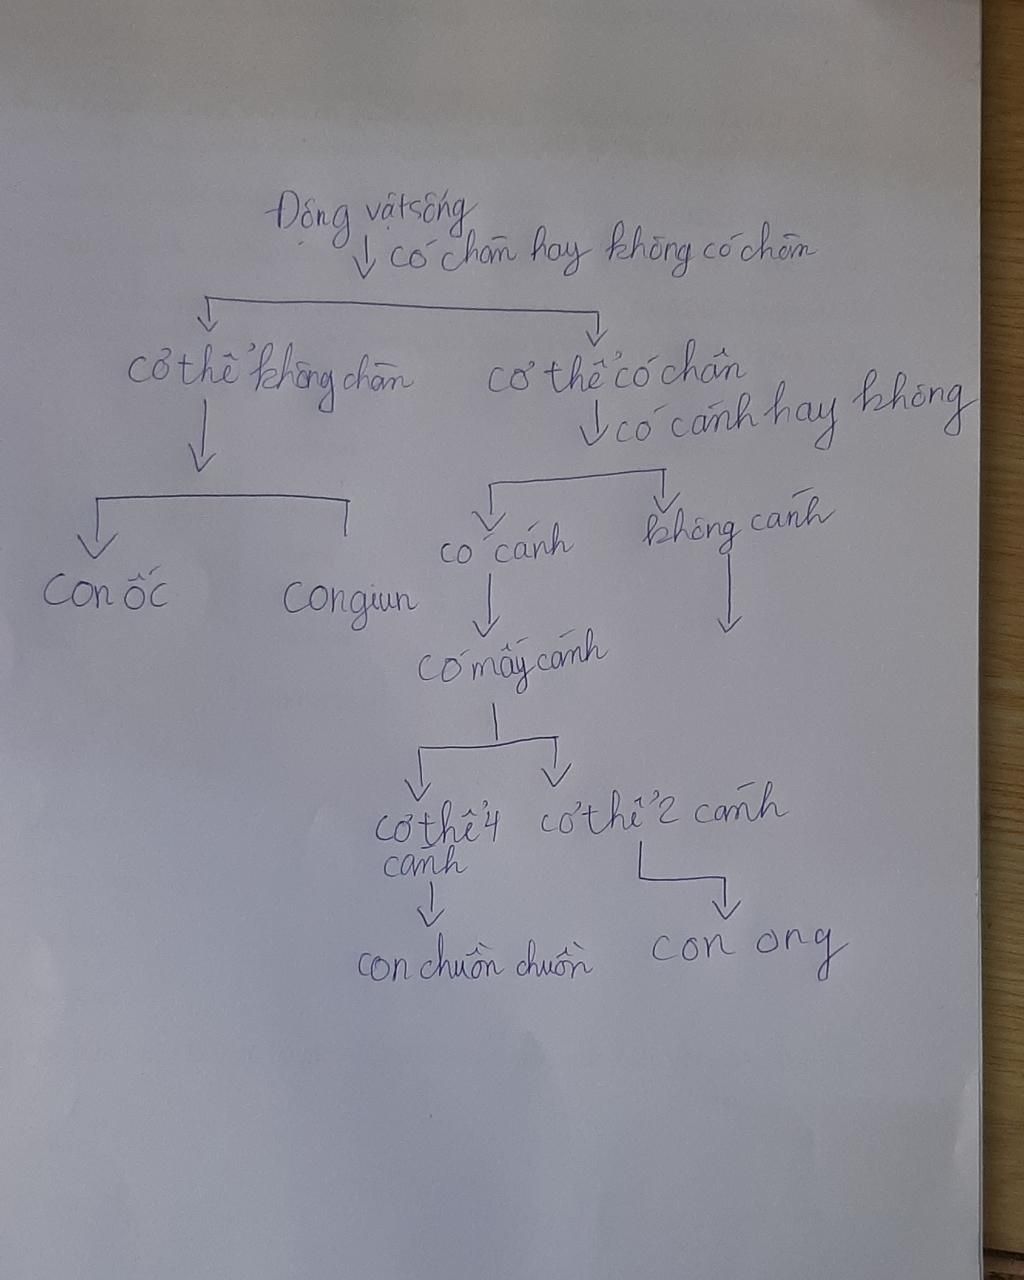 Động vật sống
có chân hay không có chân
cơ thể không chân
cơ thể có chân
có cánh hay không
có cánh
không cánh
con ốc
con giun
có mấy cánh
cơ thể 4
cánh
cơ thể 2 cánh
con chuồn chuồn
con ong